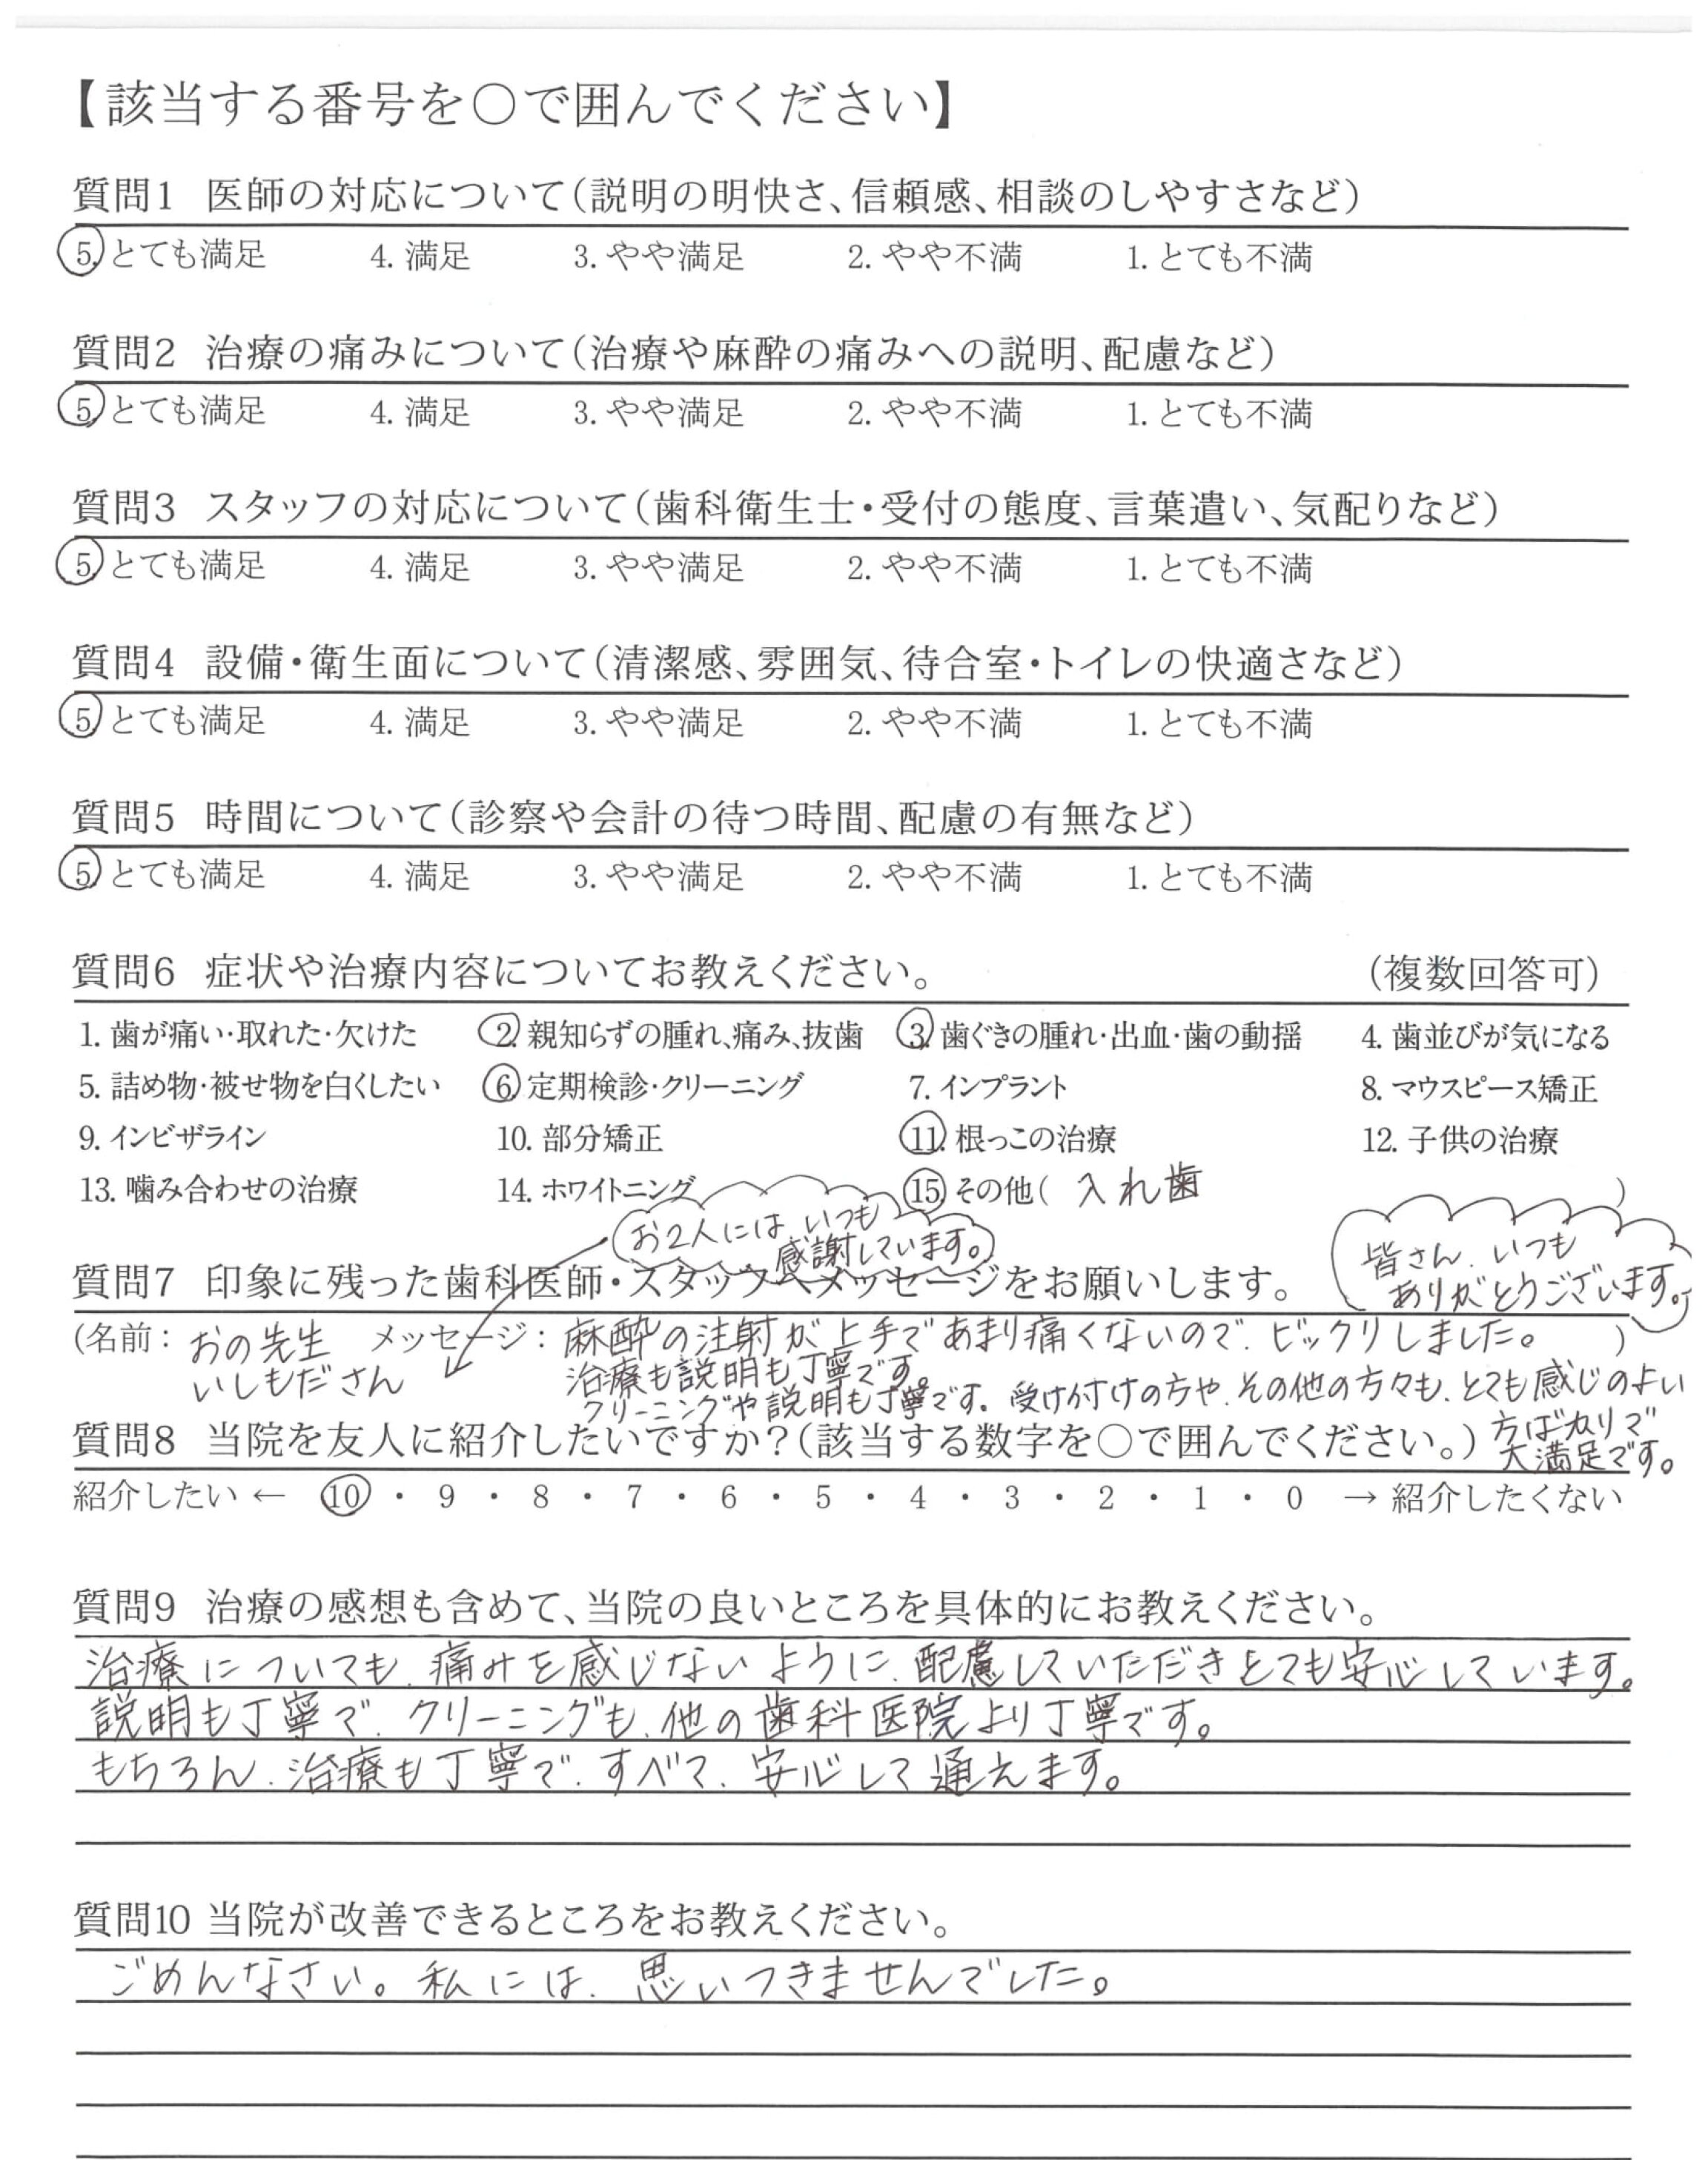 【該当する番号を○で囲んでください】
質問1 医師の対応について(説明の明快さ、信頼感、相談のしやすさなど)
5. とても満足 4. 満足 3. やや満足 2. やや不満 1. とても不満
質問2 治療の痛みについて(治療や麻酔の痛みへの説明、配慮など)
5. とても満足 4. 満足 3. やや満足 2. やや不満 1. とても不満
質問3 スタッフの対応について(歯科衛生士・受付の態度、言葉遣い、気配りなど)
5. とても満足 4. 満足 3. やや満足 2. やや不満 1. とても不満
質問4 設備・衛生面について(清潔感、雰囲気、待合室・トイレの快適さなど)
5. とても満足 4. 満足 3. やや満足 2. やや不満 1. とても不満
質問5 時間について(診察や会計の待つ時間、配慮の有無など)
5. とても満足 4. 満足 3. やや満足 2. やや不満 1. とても不満
質問6 症状や治療内容についてお教えください。 (複数回答可)
1. 歯が痛い・取れた・欠けた 2. 親知らずの腫れ、痛み、抜歯 3. 歯ぐきの腫れ・出血・歯の動揺 4. 歯並びが気になる
5. 詰め物・被せ物を白くしたい 6. 定期検診・クリーニング 7. インプラント 8. マウスピース矯正
9. インビザライン 10. 部分矯正 11. 根っこの治療 12. 子供の治療
13. 噛み合わせの治療 14. ホワイトニング 15. その他( 入れ歯 )
お2人には、いつも
感謝しています。
皆さん、いつも
ありがとうございます。
質問7 印象に残った歯科医師・スタッフへメッセージをお願いします。
(名前: おの先生 メッセージ: 麻酔の注射が上手であまり痛くないので、ビックリしました。 )
治療も説明も丁寧です。
いしもださん クリーニングや説明も丁寧です。受け付けの方や、その他の方々も、とても感じのよい
方ばかりで
大満足です。
質問8 当院を友人に紹介したいですか?(該当する数字を○で囲んでください。)
紹介したい ← 10 ・ 9 ・ 8 ・ 7 ・ 6 ・ 5 ・ 4 ・ 3 ・ 2 ・ 1 ・ 0 → 紹介したくない
質問9 治療の感想も含めて、当院の良いところを具体的にお教えください。
治療についても、痛みを感じないように、配慮していただきとても安心しています。
説明も丁寧で、クリーニングも、他の歯科医院より丁寧です。
もちろん、治療も丁寧で、すべて、安心して通えます。
質問10 当院が改善できるところをお教えください。
ごめんなさい。私には、思いつきませんでした。